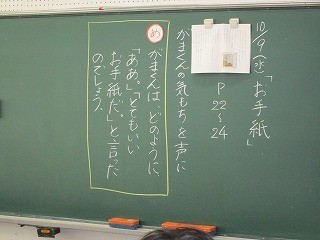 10/9(水)「お手紙」
P22~24
がまくんの気もちを声に
め
がまくんは、どのように
「ああ。」「とてもいい
お手紙だ。」と、言った
のでしょう。